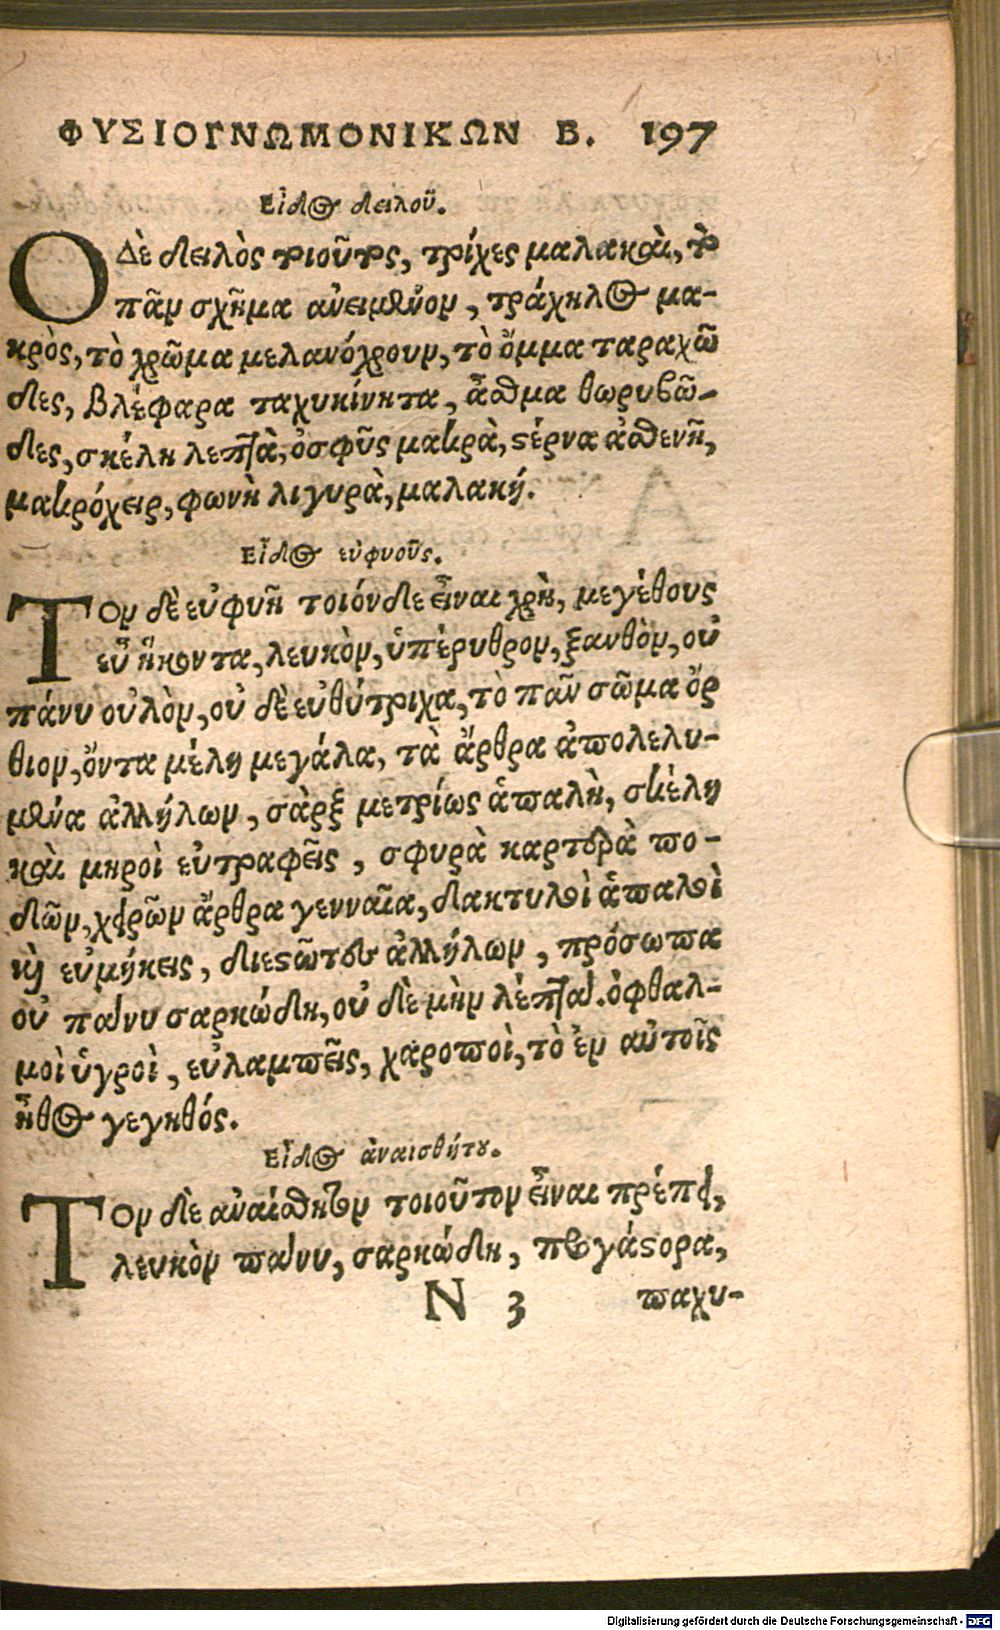 ΦΥΣΙΟΓΝΩΜΟΝΙΚΩΝ Β. 197
Εἶδος δειλοῦ.
Ο Δὲ δειλὸς τοιοῦτος, τρίχες μαλακαὶ, τὸ
πᾶν σχῆμα ἀνειμένον, τράχηλος μα-
κρὸς, τὸ χρῶμα μελανόχρουν, τὸ ὄμμα ταραχῶ
δες, βλέφαρα ταχυκίνητα, ἆσθμα θωρυβῶ-
δες, σκέλη λεπτὰ, ὀσφῦς μακρὰ, στέρνα ἀσθενῆ,
μακρόχειρ, φωνὴ λιγυρὰ, μαλακή.
Εἶδος εὐφυοῦς.
Τὸν δὲ εὐφυῆ τοιόνδε εἶναι χρὴ, μεγέθους
εὖ ἥκοντα, λευκὸν, ὑπέρυθρον, ξανθὸν, οὐ
πάνυ οὐλὸν, οὐ δὲ εὐθύτριχα, τὸ πᾶν σῶμα ὄρ
θιον, ὄντα μέλη μεγάλα, τὰ ἄρθρα ἀπολελυ-
μένα ἀλλήλων, σὰρξ μετρίως ἁπαλὴ, σκέλη
καὶ μηροὶ εὐτραφεῖς, σφυρὰ καρτερὰ πο-
δῶν, χειρῶν ἄρθρα γενναῖα, δακτυλοὶ ἁπαλοὶ
καὶ εὐμήκεις, διεστῶτες ἀλλήλων, πρόσωπα
οὐ πάνυ σαρκώδη, οὐ δὲ μὴν λέπτα. ὀφθαλ-
μοὶ ὑγροὶ, εὐλαμπεῖς, χαροποὶ, τὸ ἐν αὐτοῖς
ἦθος γεγηθός.
Εἶδος ἀναισθήτου.
Τὸν δὲ ἀναίσθητον τοιοῦτον εἶναι πρέπει,
λευκὸν πάνυ, σαρκώδη, προγάστορα,
N 3 παχυ-
Digitalisierung gefördert durch die Deutsche Forschungsgemeinschaft - DFG